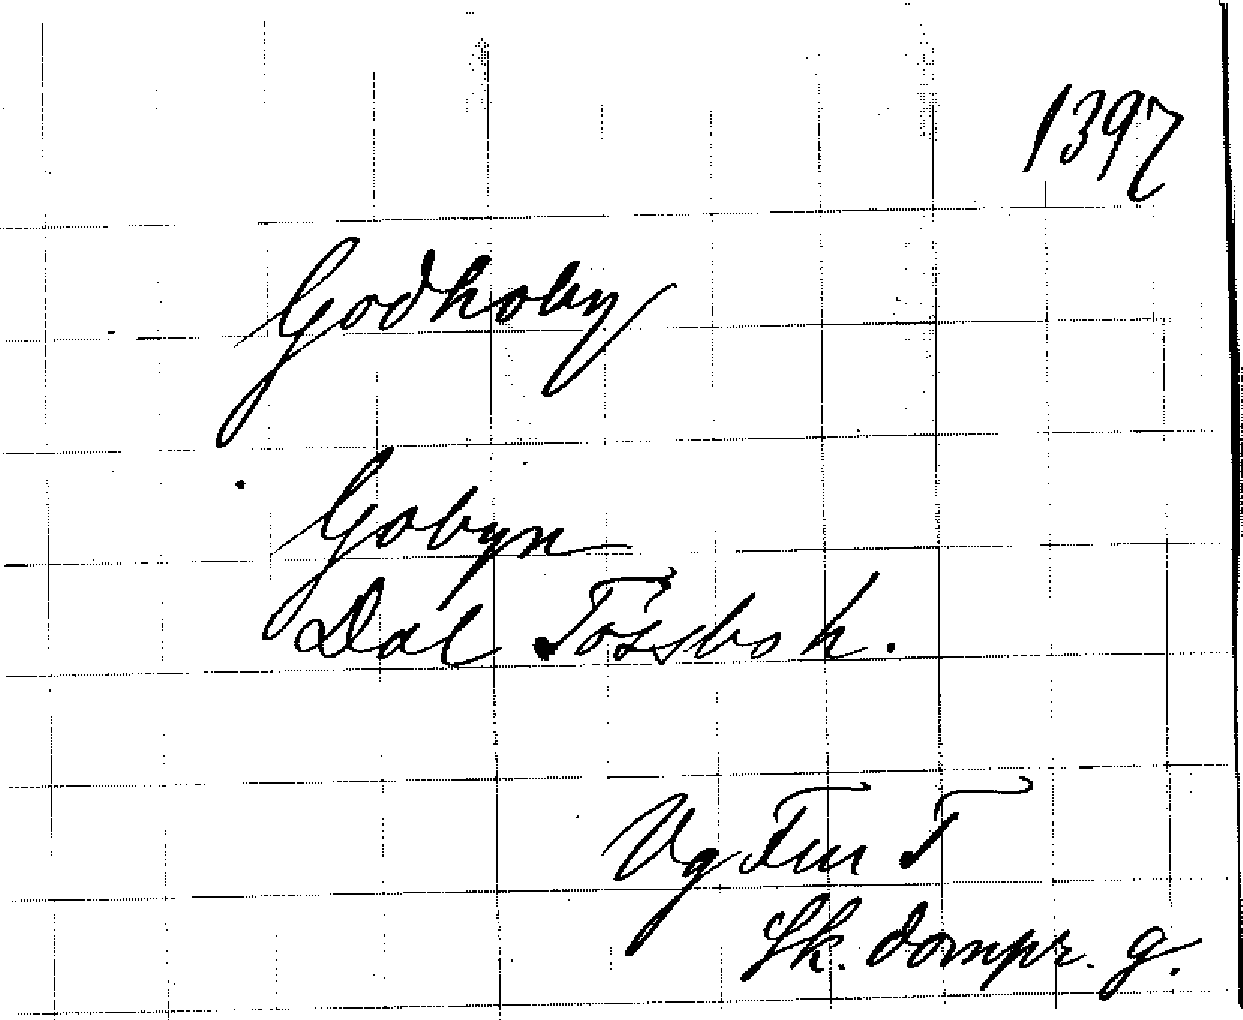 1397
Godhoby
Gobyn
Dal Tössbo h.
Vg Fur T
Sk. dompr. g.